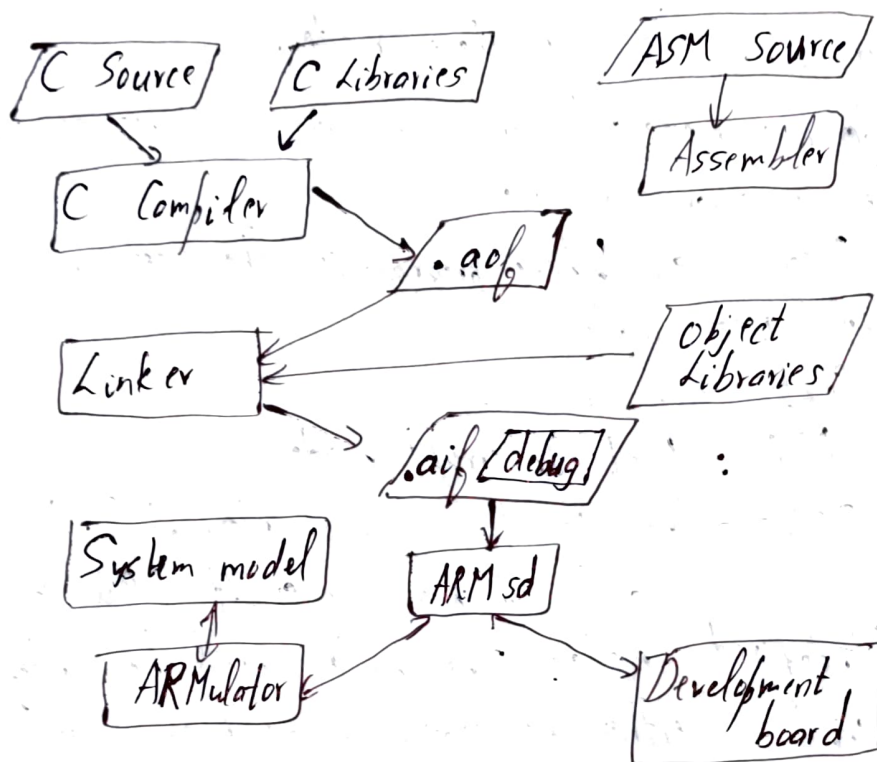 C Source
C Libraries
ASM Source
Assembler
C Compiler
.aof
Object
Libraries
Linker
.aif debug
System model
ARMsd
ARMulator
Development
board